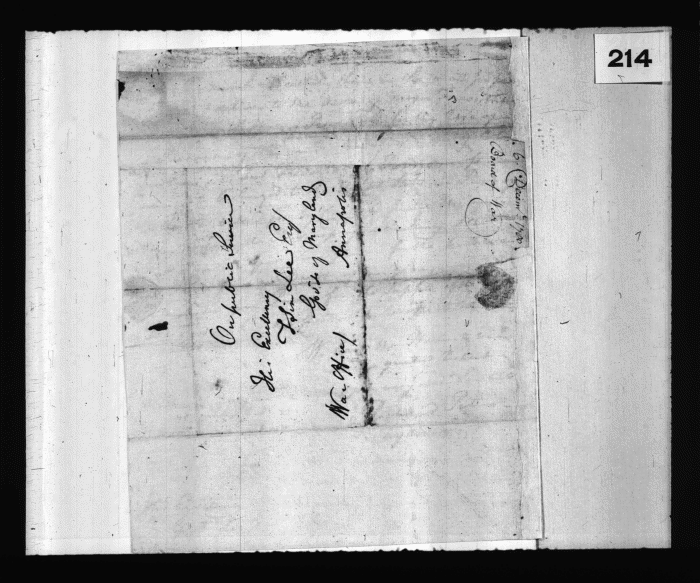 214
On public Service
His Excellency
Thos Sim Lee Esqr
Govr of Maryland
Annapolis
War Office
6 Decemr
Board of War